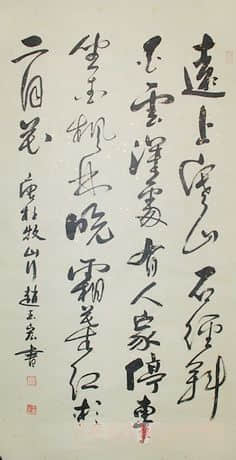 遠上寒山石徑斜
白雲深處有人家停車
坐愛楓林晚霜葉紅於
二月花 唐杜牧山行 趙玉宏書